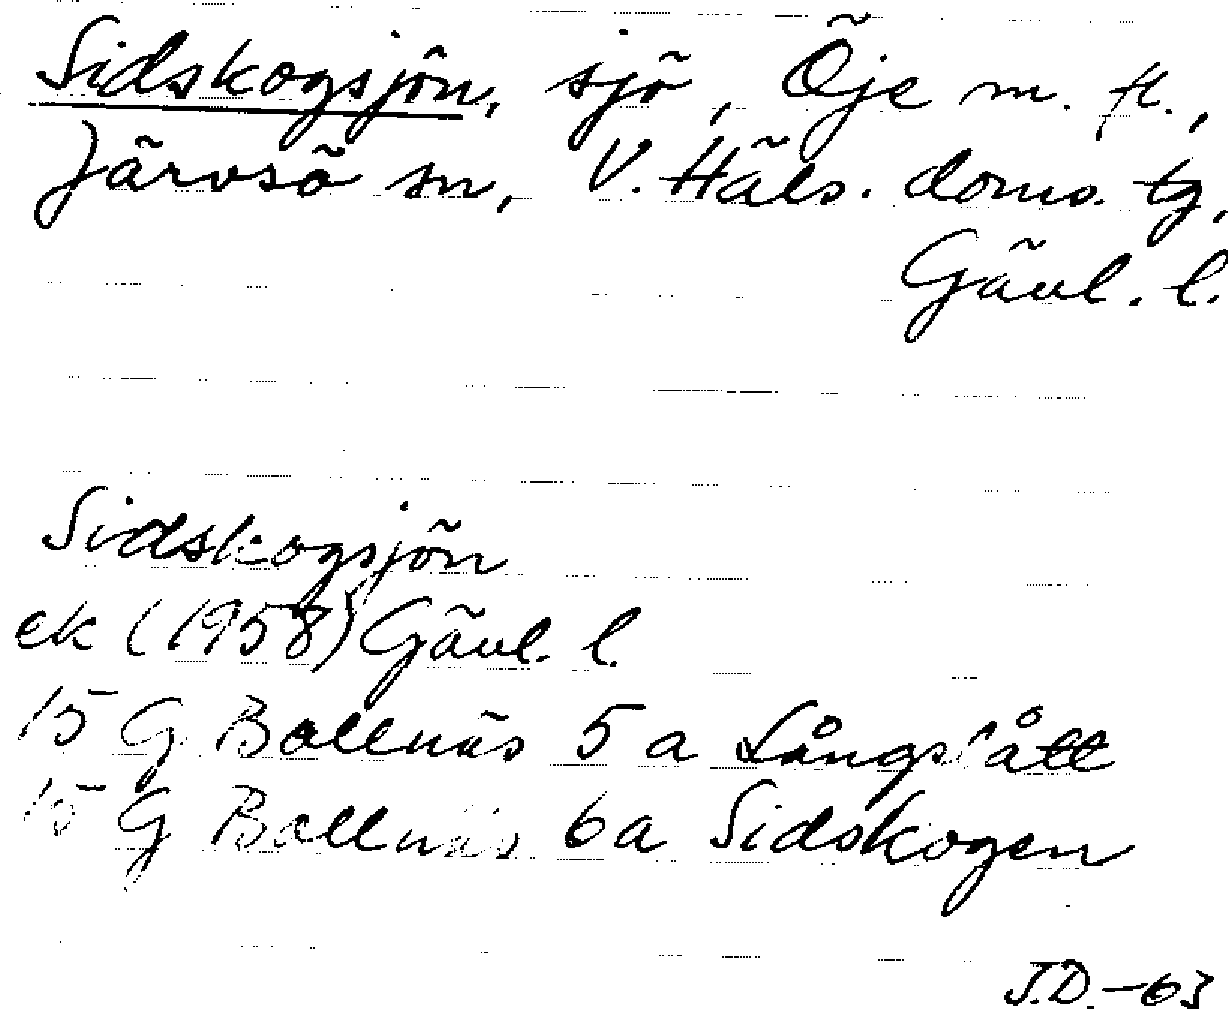 Sidskogsjön, sjö, Öje m. fl.,
Järvsö sn, V. Häls. doms. tg,
Gävl. l.
Sidskogsjön
ek (1958) Gävl. l.
15 G Bollnäs 5 a Långslått
15 G Bollnäs 6a Sidskogen
J.D.-63